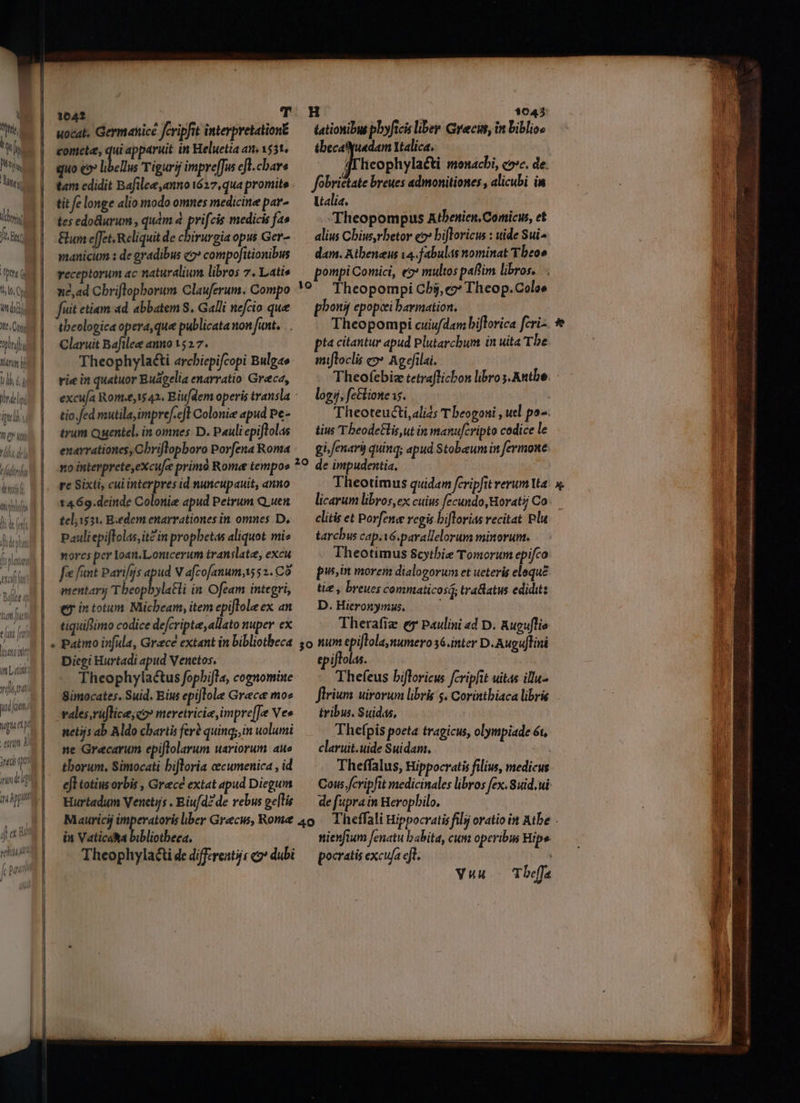 1042 T
uocat. Germanicè scripsit interpretationē
cometæ, qui apparuit in Heluetia an. 1531.
quo & libellus Tigurij impressus est. chare
tam edidit Basileæ, anno 1627, qua promit=
tit se longe alio modo omnes medicinæ par=
tes edocturum, quàm à priscis medicis fa=
ctum esset. Reliquit de chirurgia opus Ger=
manicum: de gradibus & compositionibus
receptorum ac naturalium libros 7. Lati=
nè, ad Christophorum Clauserum. Compo
suit etiam ad abbatem S. Galli nescio quæ
theologica opera, quæ publicata non sunt.
Claruit Basileæ anno 1527.
Theophylacti archiepiscopi Bulga=
riæ in quatuor Euāgelia enarratio Græca,
excusa Romæ, 1542. Eiusdem operis transla
tio, sed mutila, impres. est Coloniæ apud Pe=
trum Quentel. in omnes D. Pauli epistolas
enarrationes, Christophoro Porsena Roma
no interprete, excusæ primò Romæ tempo=
re Sixti, cui interpres id nuncupauit, anno
1469. deinde Coloniæ apud Petrum Quen
tel, 1531. Eædem enarrationes in omnes D.
Pauli epistolas, itē in prophetas aliquot mi=
nores per Ioan. Lonicerum translatæ, excu
sæ sunt Parisijs apud Vascosanum, 1552. Cō
mentarij Theophylacti in Oseam integri,
& in totum Micheam, item epistolæ ex an
tiquissimo codice descriptæ, allato nuper ex
Patmo insula, Græcè extant in bibliotheca
Diegi Hurtadi apud Venetos.
Theophylactus sophista, cognomine
Simocates. Suid. Eius epistolæ Græcæ mo=
rales, rusticæ, & meretriciæ, impressæ Ve=
netijs ab Aldo chartis ferè quinq;, in uolumi
ne Græcarum epistolarum uariorum au=
thorum. Simocati historia œcumenica, id
est totius orbis, Græcè extat apud Diegum
Hurtadum Venetijs. Eiusdē de rebus gestis
Mauricij imperatoris liber Græcus, Romæ
in Vaticana bibliotheca.
Theophylacti de differentijs & dubi
H 1043
tationibus physicis liber Græcus, in biblio=
theca quadam Italica.
Theophylacti monachi, &c. de
sobrietate breues admonitiones, alicubi in
Italia.
Theopompus Athenien. Comicus, et
alius Chius, rhetor & historicus: uide Sui=
dam. Athenæus 14. fabulas nominat Theo=
pompi Comici, & multos passim libros.
10 Theopompi Chij, & Theop. Colo=
phonij epopœi harmation.
Theopompi cuiusdam historica scri= *
pta citantur apud Plutarchum in uita The
mistoclis & Agesilai.
Theosebiæ tetrastichon libro 3. Antho=
logij, sectione 15.
Theoteucti, aliàs Theogoni, uel po=
tius Theodectis, ut in manuscripto codice le
gi, senarij quinq; apud Stobæum in sermone
20 de impudentia.
Theotimus quidam scripsit rerum Ita
licarum libros, ex cuius secundo, Horatij Co
clitis et Porsenæ regis historias recitat Plu
tarchus cap. 16. parallelorum minorum.
Theotimus Scythiæ Tomorum episco
pus, in morem dialogorum et ueteris eloquē
tiæ, breues commaticosq; tractatus edidit:
D. Hieronymus.
Therasiæ & Paulini ad D. Augusti=
30 num epistola, numero 36. inter D. Augustini
epistolas.
Theseus historicus scripsit uitas illu=
strium uirorum libris 5. Corinthiaca libris
tribus. Suidas.
Thespis poeta tragicus, olympiade 61,
claruit. uide Suidam.
Thessalus, Hippocratis filius, medicus
Cous, scripsit medicinales libros sex. Suid. ui
de supra in Herophilo.
40 Thessali Hippocratis filij oratio in Athe
niensium senatu habita, cum operibus Hip=
pocratis excusa est.
Vuu Thessa